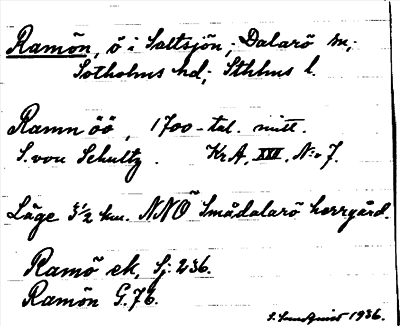 Ramön, ö i Saltsjön; Dalarö sn;
Sotholms hd; Sthlms l.
Ramn öö, 1700-tal. mitt.
S. von Schultz. Kr A. XXVI. N:o 7.
Läge 3 1/2 km. NNÖ Smådalarö herrgård.
Ramö ek, Sj: 236.
Ramön G. 76.
1936.